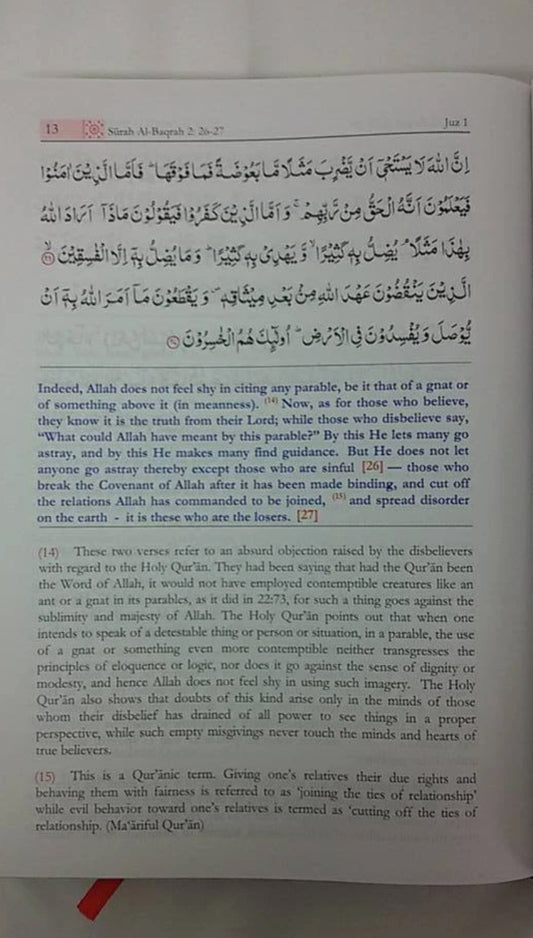 13 Sūrah Al-Baqrah 2: 26-27 Juz 1
اِنَّ اللّٰهَ لَا يَسْتَحْيٖٓ اَنْ يَّضْرِبَ مَثَلًا مَّا بَعُوْضَةً فَمَا فَوْقَهَا ؕ فَاَمَّا الَّذِيْنَ اٰمَنُوْا
فَيَعْلَمُوْنَ اَنَّهُ الْحَقُّ مِنْ رَّبِّهِمْ ۚ وَ اَمَّا الَّذِيْنَ كَفَرُوْا فَيَقُوْلُوْنَ مَاذَاۤ اَرَادَ اللّٰهُ
بِهٰذَا مَثَلًا ۘ يُضِلُّ بِهٖ كَثِيْرًا ۙ وَّ يَهْدِىْ بِهٖ كَثِيْرًا ؕ وَ مَا يُضِلُّ بِهٖۤ اِلَّا الْفٰسِقِيْنَ ۙ ﴿۲۶﴾
الَّذِيْنَ يَنْقُضُوْنَ عَهْدَ اللّٰهِ مِنْۢ بَعْدِ مِيْثَاقِهٖ ۪ وَ يَقْطَعُوْنَ مَاۤ اَمَرَ اللّٰهُ بِهٖۤ اَنْ
يُّوْصَلَ وَ يُفْسِدُوْنَ فِى الْاَرْضِ ؕ اُولٰٓئِكَ هُمُ الْخٰسِرُوْنَ ﴿۲۷﴾
Indeed, Allah does not feel shy in citing any parable, be it that of a gnat or
of something above it (in meanness). (14) Now, as for those who believe,
they know it is the truth from their Lord; while those who disbelieve say,
“What could Allah have meant by this parable?” By this He lets many go
astray, and by this He makes many find guidance. But He does not let
anyone go astray thereby except those who are sinful [26] — those who
break the Covenant of Allah after it has been made binding, and cut off
the relations Allah has commanded to be joined, (15) and spread disorder
on the earth - it is these who are the losers. [27]
(14) These two verses refer to an absurd objection raised by the disbelievers
with regard to the Holy Qur’ān. They had been saying that had the Qur’ān been
the Word of Allah, it would not have employed contemptible creatures like an
ant or a gnat in its parables, as it did in 22:73, for such a thing goes against the
sublimity and majesty of Allah. The Holy Qur’ān points out that when one
intends to speak of a detestable thing or person or situation, in a parable, the use
of a gnat or something even more contemptible neither transgresses the
principles of eloquence or logic, nor does it go against the sense of dignity or
modesty, and hence Allah does not feel shy in using such imagery. The Holy
Qur’ān also shows that doubts of this kind arise only in the minds of those
whom their disbelief has drained of all power to see things in a proper
perspective, while such empty misgivings never touch the minds and hearts of
true believers.
(15) This is a Qur’ānic term. Giving one’s relatives their due rights and
behaving them with fairness is referred to as ‘joining the ties of relationship’
while evil behavior toward one’s relatives is termed as ‘cutting off the ties of
relationship. (Ma‘āriful Qur’ān)